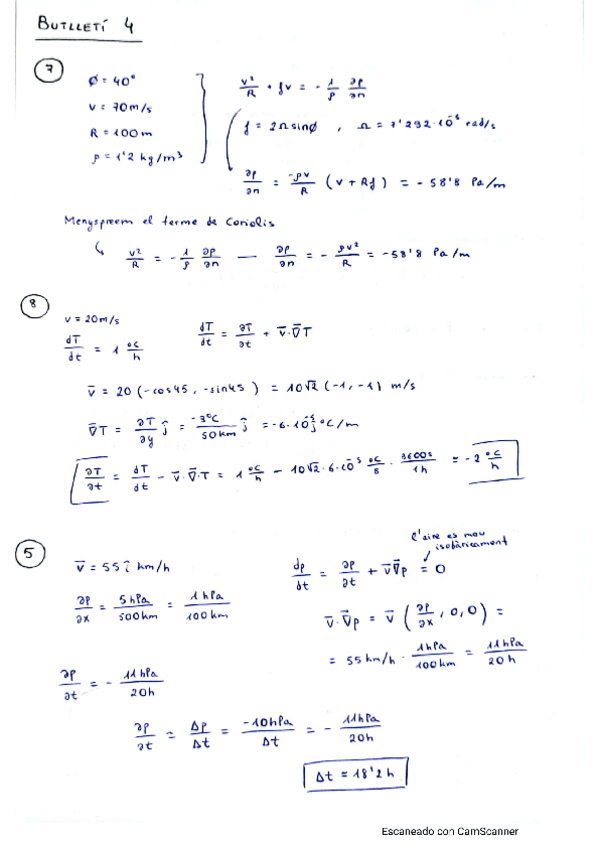 BUTLLETÍ 4
7
φ = 40°
v = 70 m/s
R = 100 m
ρ = 1'2 kg/m³
v²/R + fv = - 1/ρ ∂p/∂n
f = 2Ω sinφ , Ω = 7'292·10⁻⁵ rad/s
∂p/∂n = -ρv/R (v + Rf) = - 58'8 Pa/m
Menyspreem el terme de Coriolis
v²/R = - 1/ρ ∂p/∂n — ∂p/∂n = - ρv²/R = -58'8 Pa/m
8
v = 20 m/s
dT/dt = 1 °C/h
dT/dt = ∂T/∂t + v̄·∇̄T
v̄ = 20 (-cos45, -sin45) = 10√2 (-1, -1) m/s
∇̄T = ∂T/∂y ĵ = -3°C/50km ĵ = -6·10⁻⁵ ĵ °C/m
∂T/∂t = dT/dt - v̄·∇̄·T = 1 °C/h - 10√2·6·10⁻⁵ °C/s · 3600s/1h = -2 °C/h
5
v̄ = 55 î km/h
l'aire es mou
isobàricament
dp/dt = ∂p/∂t + v̄∇̄p = 0
∂p/∂x = 5hPa/500km = 1hPa/100km
v̄·∇̄p = v̄ (∂p/∂x, 0, 0) =
= 55 km/h · 1hPa/100km = 11hPa/20h
∂p/∂t = - 11hPa/20h
∂p/∂t = Δp/Δt = -10hPa/Δt = - 11hPa/20h
Δt = 18'2 h
Escaneado con CamScanner